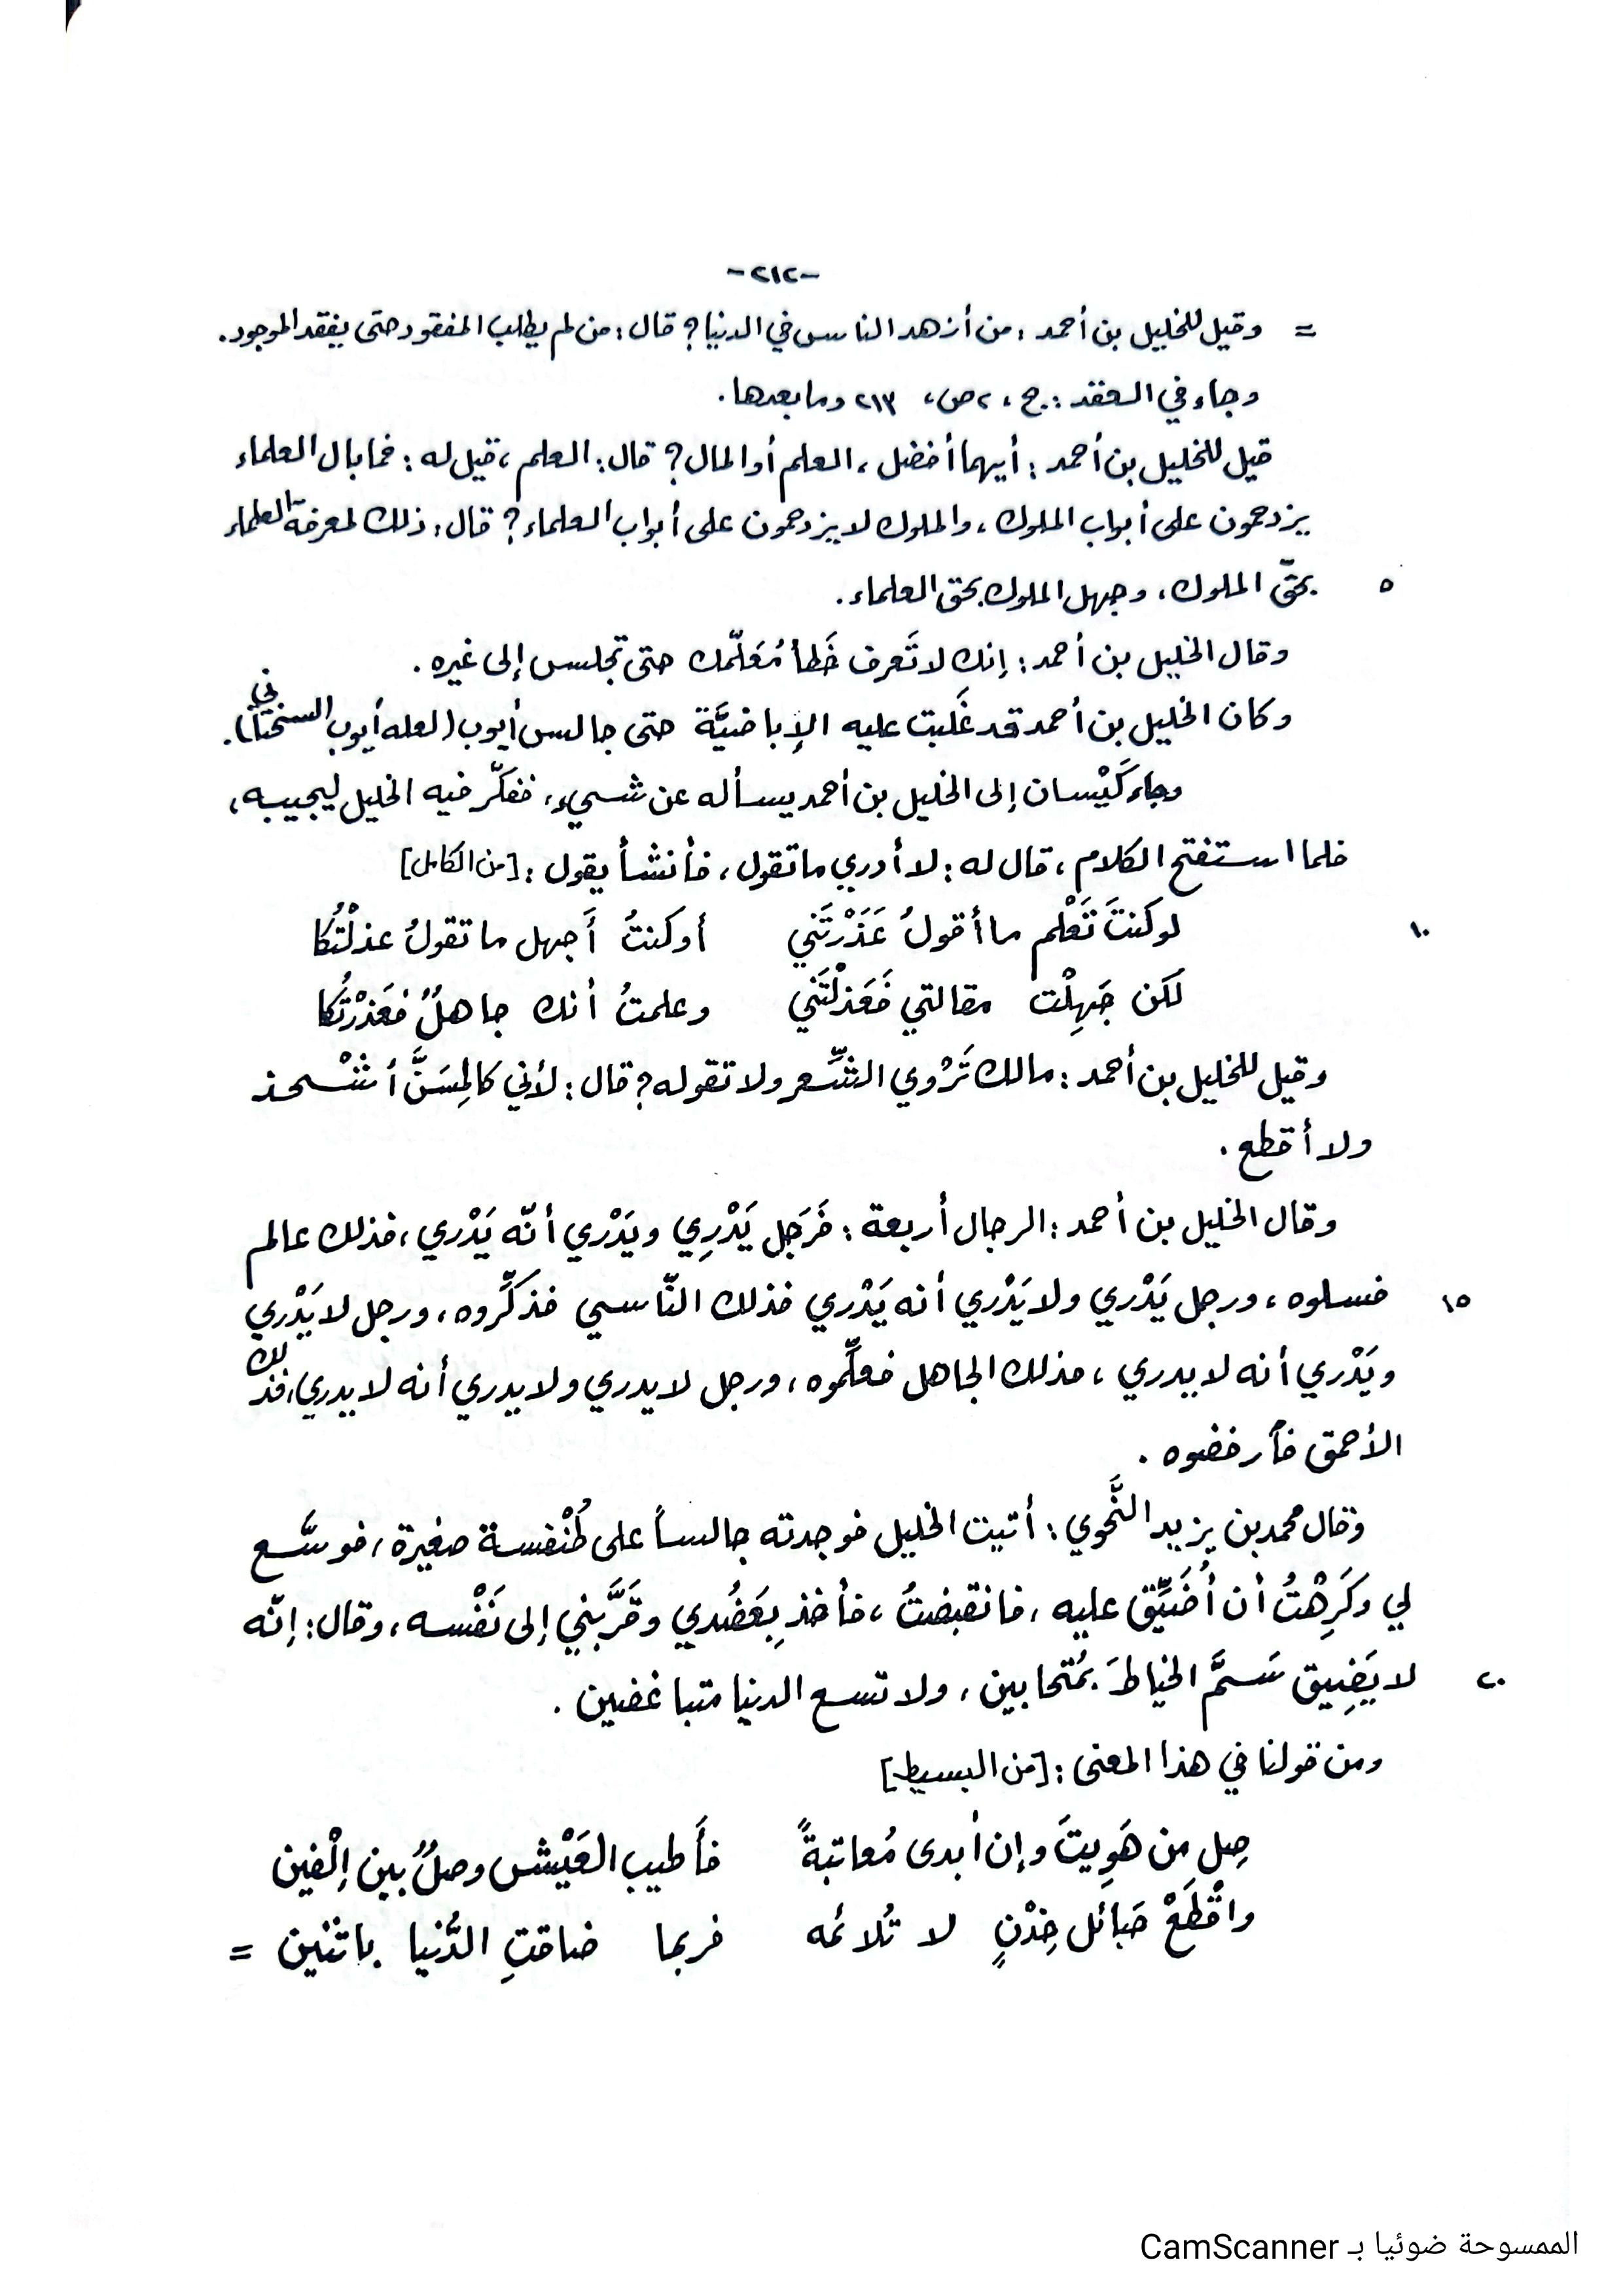 -٢١٢-
= وقيل للخليل بن أحمد : من أزهد الناس في الدنيا؟ قال: من لم يطلب المفقود حتى يفقد الموجود.
وجاء في العقد : ج ، ٢ ص ، ٢١٣ وما بعدها .
قيل للخليل بن أحمد : أيهما أفضل ، العلم أو المال؟ قال: العلم ، قيل له : فما بال العلماء
يزدحمون على أبواب الملوك ، والملوك لا يزدحمون على أبواب العلماء؟ قال: ذلك لمعرفة العلماء
٥ بحقّ الملوك ، وجهل الملوك بحق العلماء .
وقال الخليل بن أحمد : إنك لا تَعرف خَطأ مُعَلّمك حتى تجلس إلى غيره .
وكان الخليل بن أحمد قد غَلبت عليه الإباضيَّة حتى جالس أيوب (لعله أيوب السختياني).
وجاء كَيْسان إلى الخليل بن أحمد يسأله عن شيء ، ففكّر فيه الخليل ليجيبه ،
فلما استفتح الكلام ، قال له : لا أدري ما تقول ، فأنشأ يقول : [من الكامل]
١٠ لو كنتَ تَعْلم ما أقولُ عَذَرْتَني أو كنتُ أَجهل ما تقولُ عذلْتُكا
لكن جَهِلْت مقالتي فَعَذلْتَني وعلمتُ أنك جاهلٌ فعَذرْتُكا
وقيل للخليل بن أحمد : مالك تَرْوي الشِّعر ولا تقوله؟ قال : لأني كالمِسَنَّ أشْحذ
ولا أقطع .
وقال الخليل بن أحمد : الرجال أربعة : فَرَجل يَدْرِي ويَدْري أنّه يَدْري ، فذلك عالم
١٥ فسلوه ، ورجل يَدْري ولا يَدْري أنه يَدْري فذلك النّاسي فذكِّروه ، ورجل لا يَدْري
ويَدْري أنه لا يدري ، فذلك الجاهل فعلِّموه ، ورجل لا يدري ولا يدري أنه لا يدري، فذلك
الأحمق فأرفضوه .
وقال محمد بن يزيد النَّحوي : أتيت الخليل فوجدته جالساً على طُنْفسة صغيرة ، فوسَّع
لي وكَرِهْتُ أن أُضَيِّق عليه ، فانقبضتُ ، فأخذ بِعَضُدي وقَرَّبني إلى نَفْسه ، وقال : إنّه
٢٠ لا يَضِيق سَمَّ الخياطَ بمُتحابين ، ولا تسع الدنيا متباغضين .
ومن قولنا في هذا المعنى : [من البسيط]
صِل من هَوِيتَ وإن أبدى مُعاتبةً فأَطيب العَيْش وصلٌ بين إلْفين
واقْطَعْ حَبائل خِدْنٍ لا تُلائمه فربما ضاقتِ الدُّنيا باثنين =
الممسوحة ضوئيا بـ CamScanner